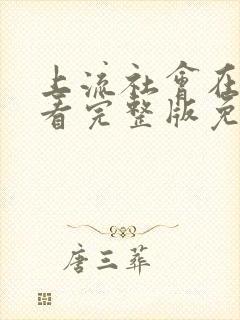 上流社會在
看完整版免
唐三葬